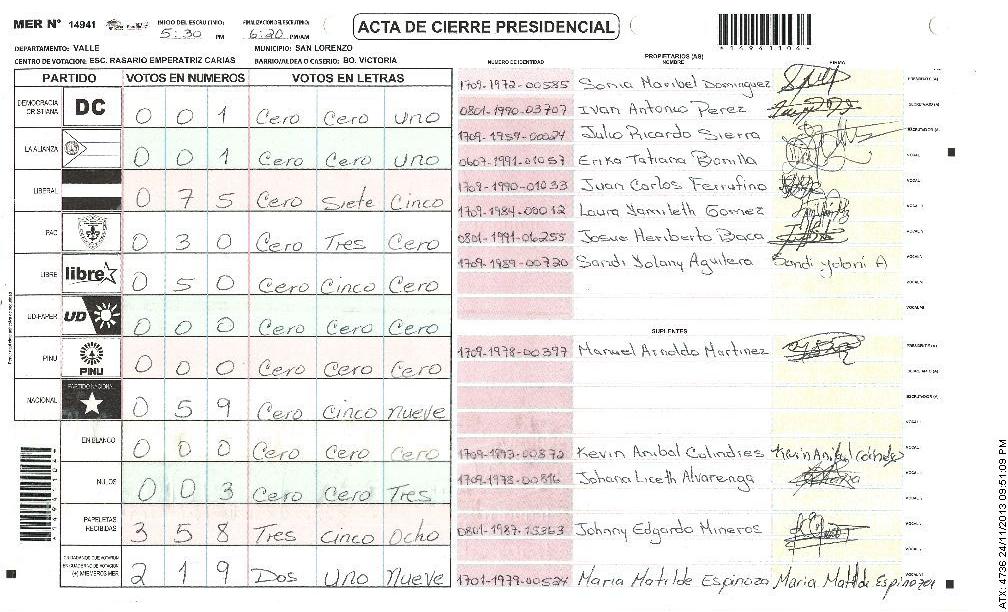 MER N° 14941 INICIO DEL ESCRUTINIO: 5:30 PM FINALIZACION DEL ESCRUTINIO: 6:20 PM/AM ACTA DE CIERRE PRESIDENCIAL
DEPARTAMENTO: VALLE MUNICIPIO: SAN LORENZO
CENTRO DE VOTACION: ESC. RASARIO EMPERATRIZ CARIAS BARRIO/ALDEA O CASERIO: BO. VICTORIA
PARTIDO VOTOS EN NUMEROS VOTOS EN LETRAS
DEMOCRACIA CRISTIANA DC 0 0 1 Cero Cero Uno
LA ALIANZA 0 0 1 Cero Cero Uno
LIBERAL 0 7 5 Cero Siete Cinco
PAC 0 3 0 Cero Tres Cero
LIBRE libre 0 5 0 Cero Cinco Cero
UD-FAPER UD 0 0 0 Cero Cero Cero
PINU PINU 0 0 0 Cero Cero Cero
NACIONAL PARTIDO NACIONAL 0 5 9 Cero Cinco Nueve
EN BLANCO 0 0 0 Cero Cero Cero
NULOS 0 0 3 Cero Cero Tres
PAPELETAS RECIBIDAS 3 5 8 Tres Cinco Ocho
CIUDADANOS QUE VOTARON EN CUADERNO DE VOTACION (+) MIEMBROS MER 2 1 9 Dos Uno Nueve
NUMERO DE IDENTIDAD PROPIETARIOS (AS) NOMBRE FIRMA
1709-1972-00585 Sonia Maribel Dominguez PRESIDENTE (A)
0801-1990-03707 Ivan Antonio Perez SECRETARIO (A)
1709-1959-00024 Julio Ricardo Sierra ESCRUTADOR (A)
0607-1991-01057 Erika Tatiana Bonilla VOCAL I
1709-1990-01033 Juan Carlos Ferrufino VOCAL
1709-1984-00012 Laura Yamileth Gomez VOCAL
0801-1991-06255 Josue Heriberto Baca VOCAL
1709-1989-00720 Sandi Yolany Aguilera Sandi yolani A VOCAL
SUPLENTES
1709-1978-00397 Manuel Arnoldo Martinez PRESIDENTE (A)
SECRETARIO (A)
ESCRUTADOR (A)
1709-1993-00872 Kevin Anibal Colindres VOCAL
1709-1978-00816 Johana Liceth Alvarenga VOCAL
0801-1987-13363 Johnny Edgardo Mineros VOCAL
1701-1979-00524 Maria Matilde Espinoza Maria Matilde Espinoza
ATX: 4736 24/11/2013 09:51:09 PM